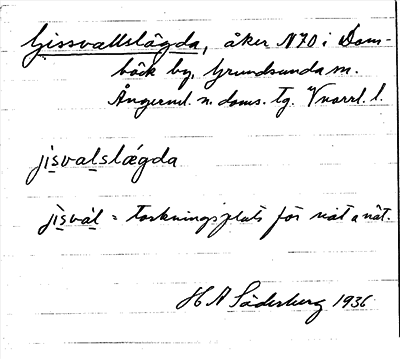 Gissvallslägda, åker N70 i Dom-
bäck by, Grundsunda sn.
Ångerml. n. doms. tg. Vnorrl. l.
jisvalslǽgda
jìsvál = torkningsplats för våta nät.
H A Söderberg 1936